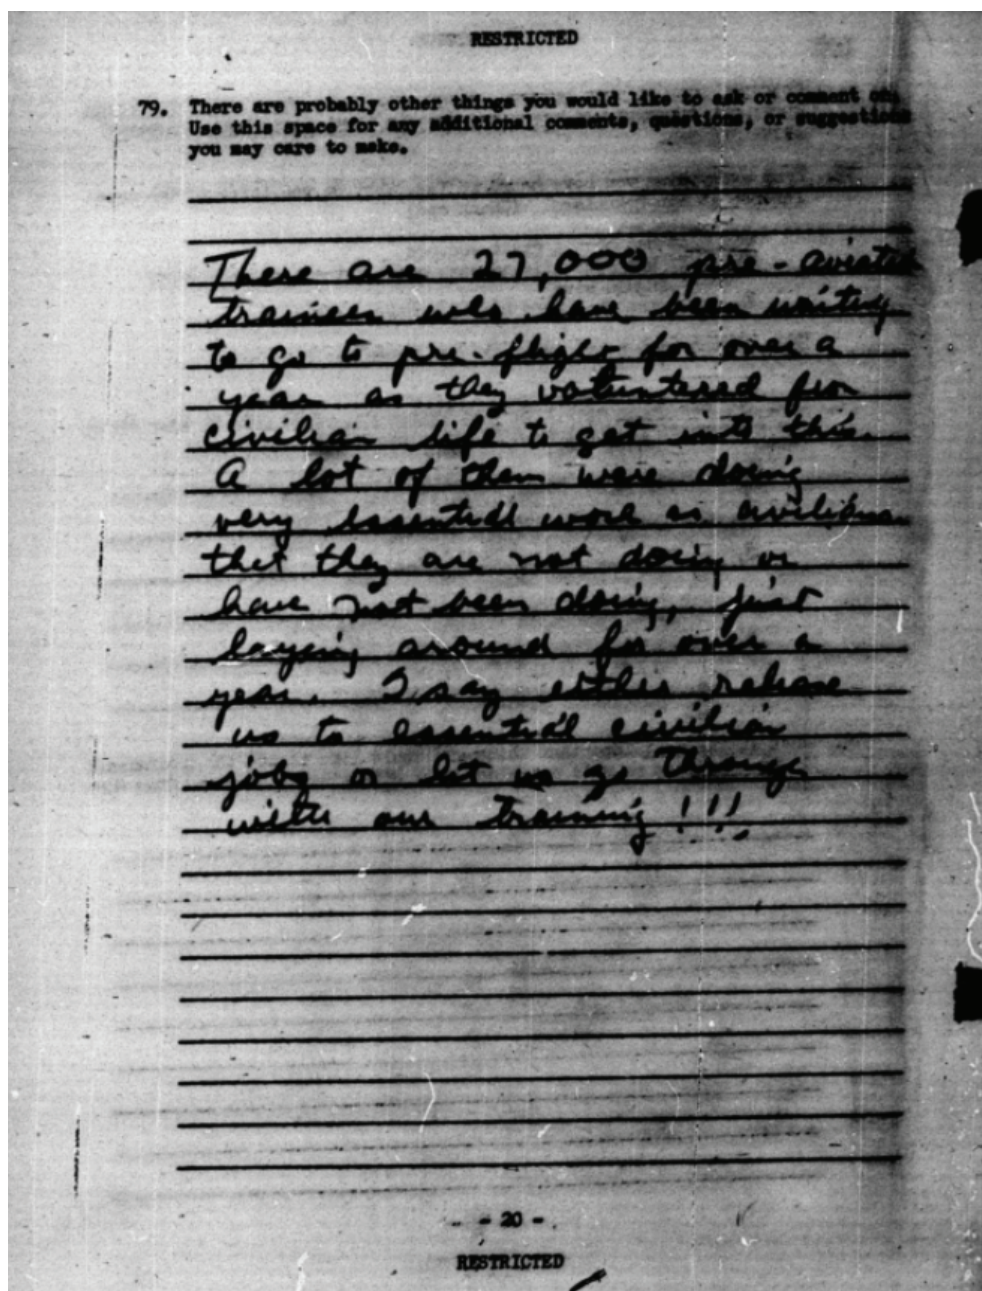 RESTRICTED
79. There are probably other things you would like to ask or comment on.
Use this space for any additional comments, questions, or suggestions
you may care to make.
There are 27,000 pre-aviation
trainees who have been waiting
to go to pre-flight for over a
year as they voluntered from
civilian life to get into this.
A lot of them were doing
very essential work as civilians
that they are not doing or
have not been doing, just
laying around for over a
year. I say either release
us to essential civilian
jobs or let us go through
with our training!!!
- 20 -
RESTRICTED